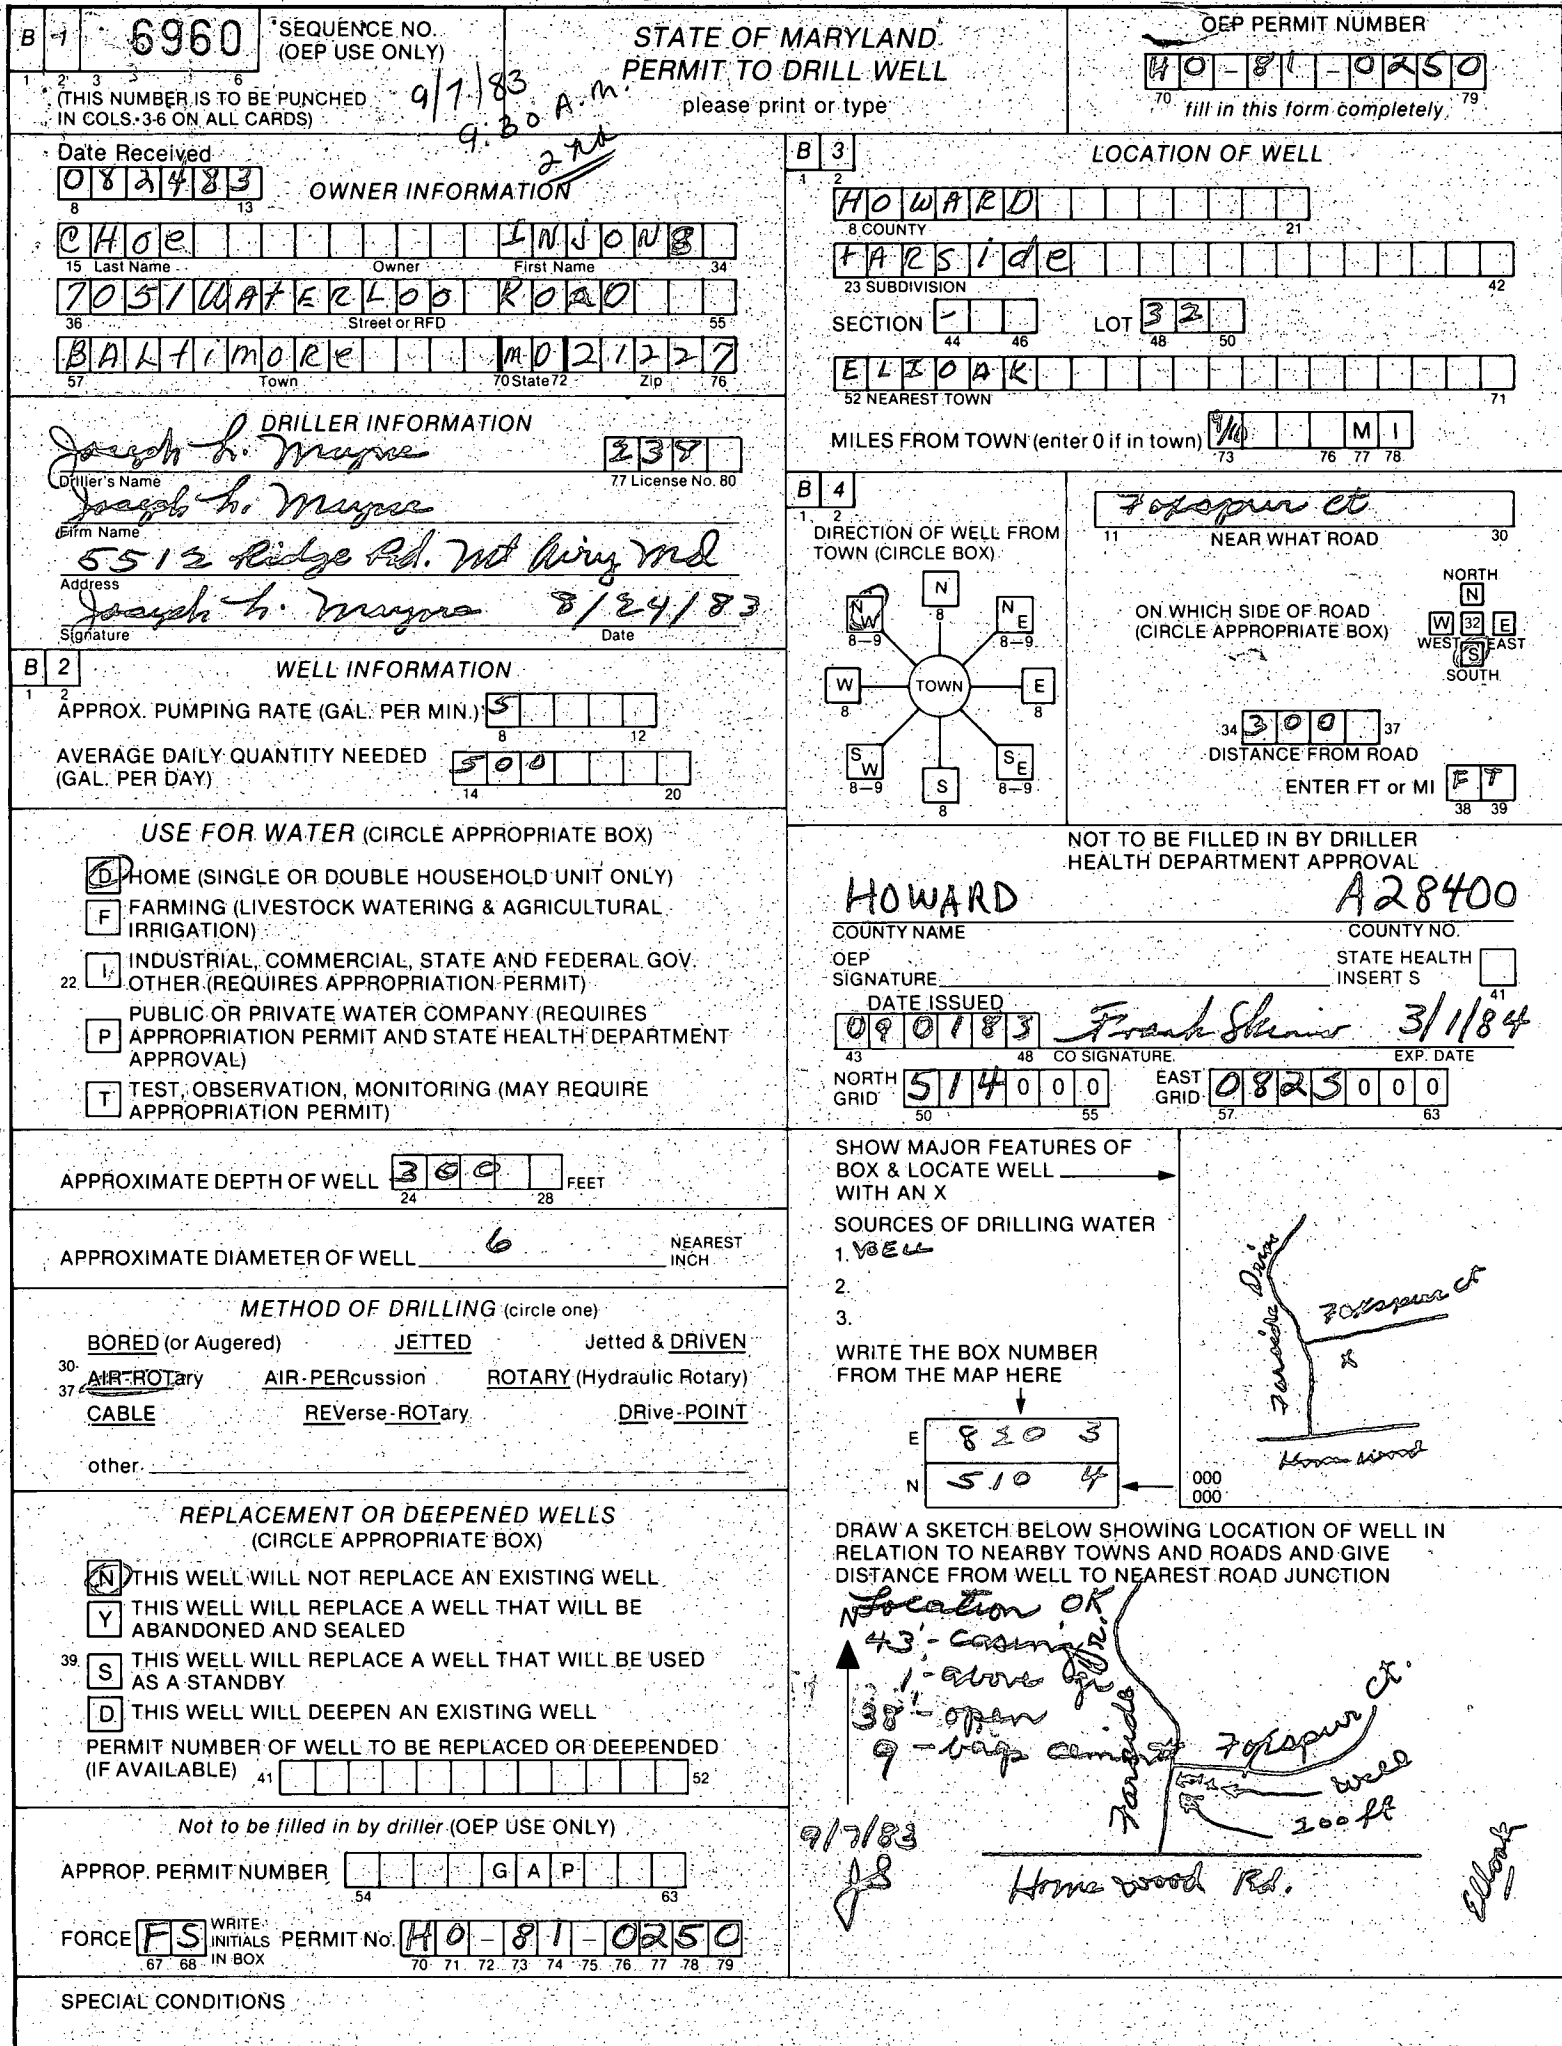 B 1 6960 SEQUENCE NO. (OEP USE ONLY)
1 2 3 6
(THIS NUMBER IS TO BE PUNCHED
IN COLS. 3-6 ON ALL CARDS)
9/7/83
9:30 A.M.
2nd
STATE OF MARYLAND
PERMIT TO DRILL WELL
please print or type
OEP PERMIT NUMBER
HO-81-0250
70 79
fill in this form completely
Date Received
082483
8 13
OWNER INFORMATION
CHOE INJONG
15 Last Name Owner First Name 34
7051 WATERLOO ROAD
36 Street or RFD 55
BALtimoRe MD 21227
57 Town 70 State 72 Zip 76
DRILLER INFORMATION
Joseph L. Mayne 238
Driller's Name 77 License No. 80
Joseph L. Mayne
Firm Name
5512 Ridge Rd. Mt Airy Md
Address
Joseph L. Mayne 8/24/83
Signature Date
B 2 WELL INFORMATION
1 2
APPROX. PUMPING RATE (GAL. PER MIN.) 5
8 12
AVERAGE DAILY QUANTITY NEEDED
(GAL. PER DAY) 500
14 20
USE FOR WATER (CIRCLE APPROPRIATE BOX)
D HOME (SINGLE OR DOUBLE HOUSEHOLD UNIT ONLY)
F FARMING (LIVESTOCK WATERING & AGRICULTURAL
IRRIGATION)
22 I INDUSTRIAL, COMMERCIAL, STATE AND FEDERAL GOV.
OTHER (REQUIRES APPROPRIATION PERMIT)
P PUBLIC OR PRIVATE WATER COMPANY (REQUIRES
APPROPRIATION PERMIT AND STATE HEALTH DEPARTMENT
APPROVAL)
T TEST, OBSERVATION, MONITORING (MAY REQUIRE
APPROPRIATION PERMIT)
APPROXIMATE DEPTH OF WELL 300 FEET
24 28
APPROXIMATE DIAMETER OF WELL 6 NEAREST
INCH
METHOD OF DRILLING (circle one)
BORED (or Augered) JETTED Jetted & DRIVEN
30-
37 AIR-ROTary AIR-PERcussion ROTARY (Hydraulic Rotary)
CABLE REVerse-ROTary DRive-POINT
other
REPLACEMENT OR DEEPENED WELLS
(CIRCLE APPROPRIATE BOX)
N THIS WELL WILL NOT REPLACE AN EXISTING WELL
Y THIS WELL WILL REPLACE A WELL THAT WILL BE
ABANDONED AND SEALED
39 S THIS WELL WILL REPLACE A WELL THAT WILL BE USED
AS A STANDBY
D THIS WELL WILL DEEPEN AN EXISTING WELL
PERMIT NUMBER OF WELL TO BE REPLACED OR DEEPENDED
(IF AVAILABLE) 41 52
Not to be filled in by driller (OEP USE ONLY)
APPROP. PERMIT NUMBER GAP
54 63
FORCE FS WRITE INITIALS IN BOX PERMIT No. HO-81-0250
67 68 70 71 72 73 74 75 76 77 78 79
SPECIAL CONDITIONS
B 3 LOCATION OF WELL
1 2
HOWARD
8 COUNTY 21
FARSide
23 SUBDIVISION 42
SECTION - LOT 32
44 46 48 50
ELIOAK
52 NEAREST TOWN 71
MILES FROM TOWN (enter 0 if in town) MI
73 76 77 78
B 4
1 2
DIRECTION OF WELL FROM
TOWN (CIRCLE BOX)
N
8
NW NE
8-9 8-9
W TOWN E
8 8
SW SE
8-9 8-9
S
8
Foxspur ct
11 NEAR WHAT ROAD 30
ON WHICH SIDE OF ROAD
(CIRCLE APPROPRIATE BOX)
NORTH
N
W 32 E
WEST EAST
S
SOUTH
34 300 37
DISTANCE FROM ROAD
ENTER FT or MI FT
38 39
NOT TO BE FILLED IN BY DRILLER
HEALTH DEPARTMENT APPROVAL
HOWARD A28400
COUNTY NAME COUNTY NO.
OEP
SIGNATURE
STATE HEALTH
INSERT S
41
DATE ISSUED
090183 Frank Skinner 3/1/84
43 48 CO SIGNATURE EXP. DATE
NORTH GRID 514000 EAST GRID 0823000
50 55 57 63
SHOW MAJOR FEATURES OF
BOX & LOCATE WELL
WITH AN X
SOURCES OF DRILLING WATER
1. WELL
2.
3.
WRITE THE BOX NUMBER
FROM THE MAP HERE
E 820 3
N 510 4
000
000
Farside Drive
Foxspur ct
x
Homewood
DRAW A SKETCH BELOW SHOWING LOCATION OF WELL IN
RELATION TO NEARBY TOWNS AND ROADS AND GIVE
DISTANCE FROM WELL TO NEAREST ROAD JUNCTION
N
Location OK
43' - casing
1' - above gr
38' - open
9 - bags cement
Farside Dr.
Foxspur Ct.
well
200 ft
9/7/83
JS
Homewood Rd.
Elioak